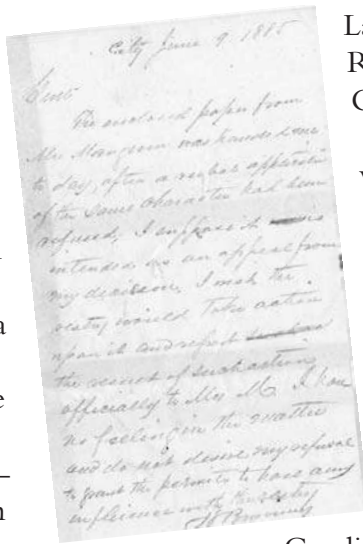 La
R
C
City June 9 1885
Gents
The enclosed paper from
Mrs Mangum was handed me
to day, after a verbal application
of the same character had been
refused. I suppose it
intended as an appeal from
my decision. I wish the
vestry would take action
upon it and report
the result of such action
officially to Mrs M. I have
no feeling in the matter
and do not desire my refusal
to grant the permits to have any
influence with the vestry
a
e
Cordi